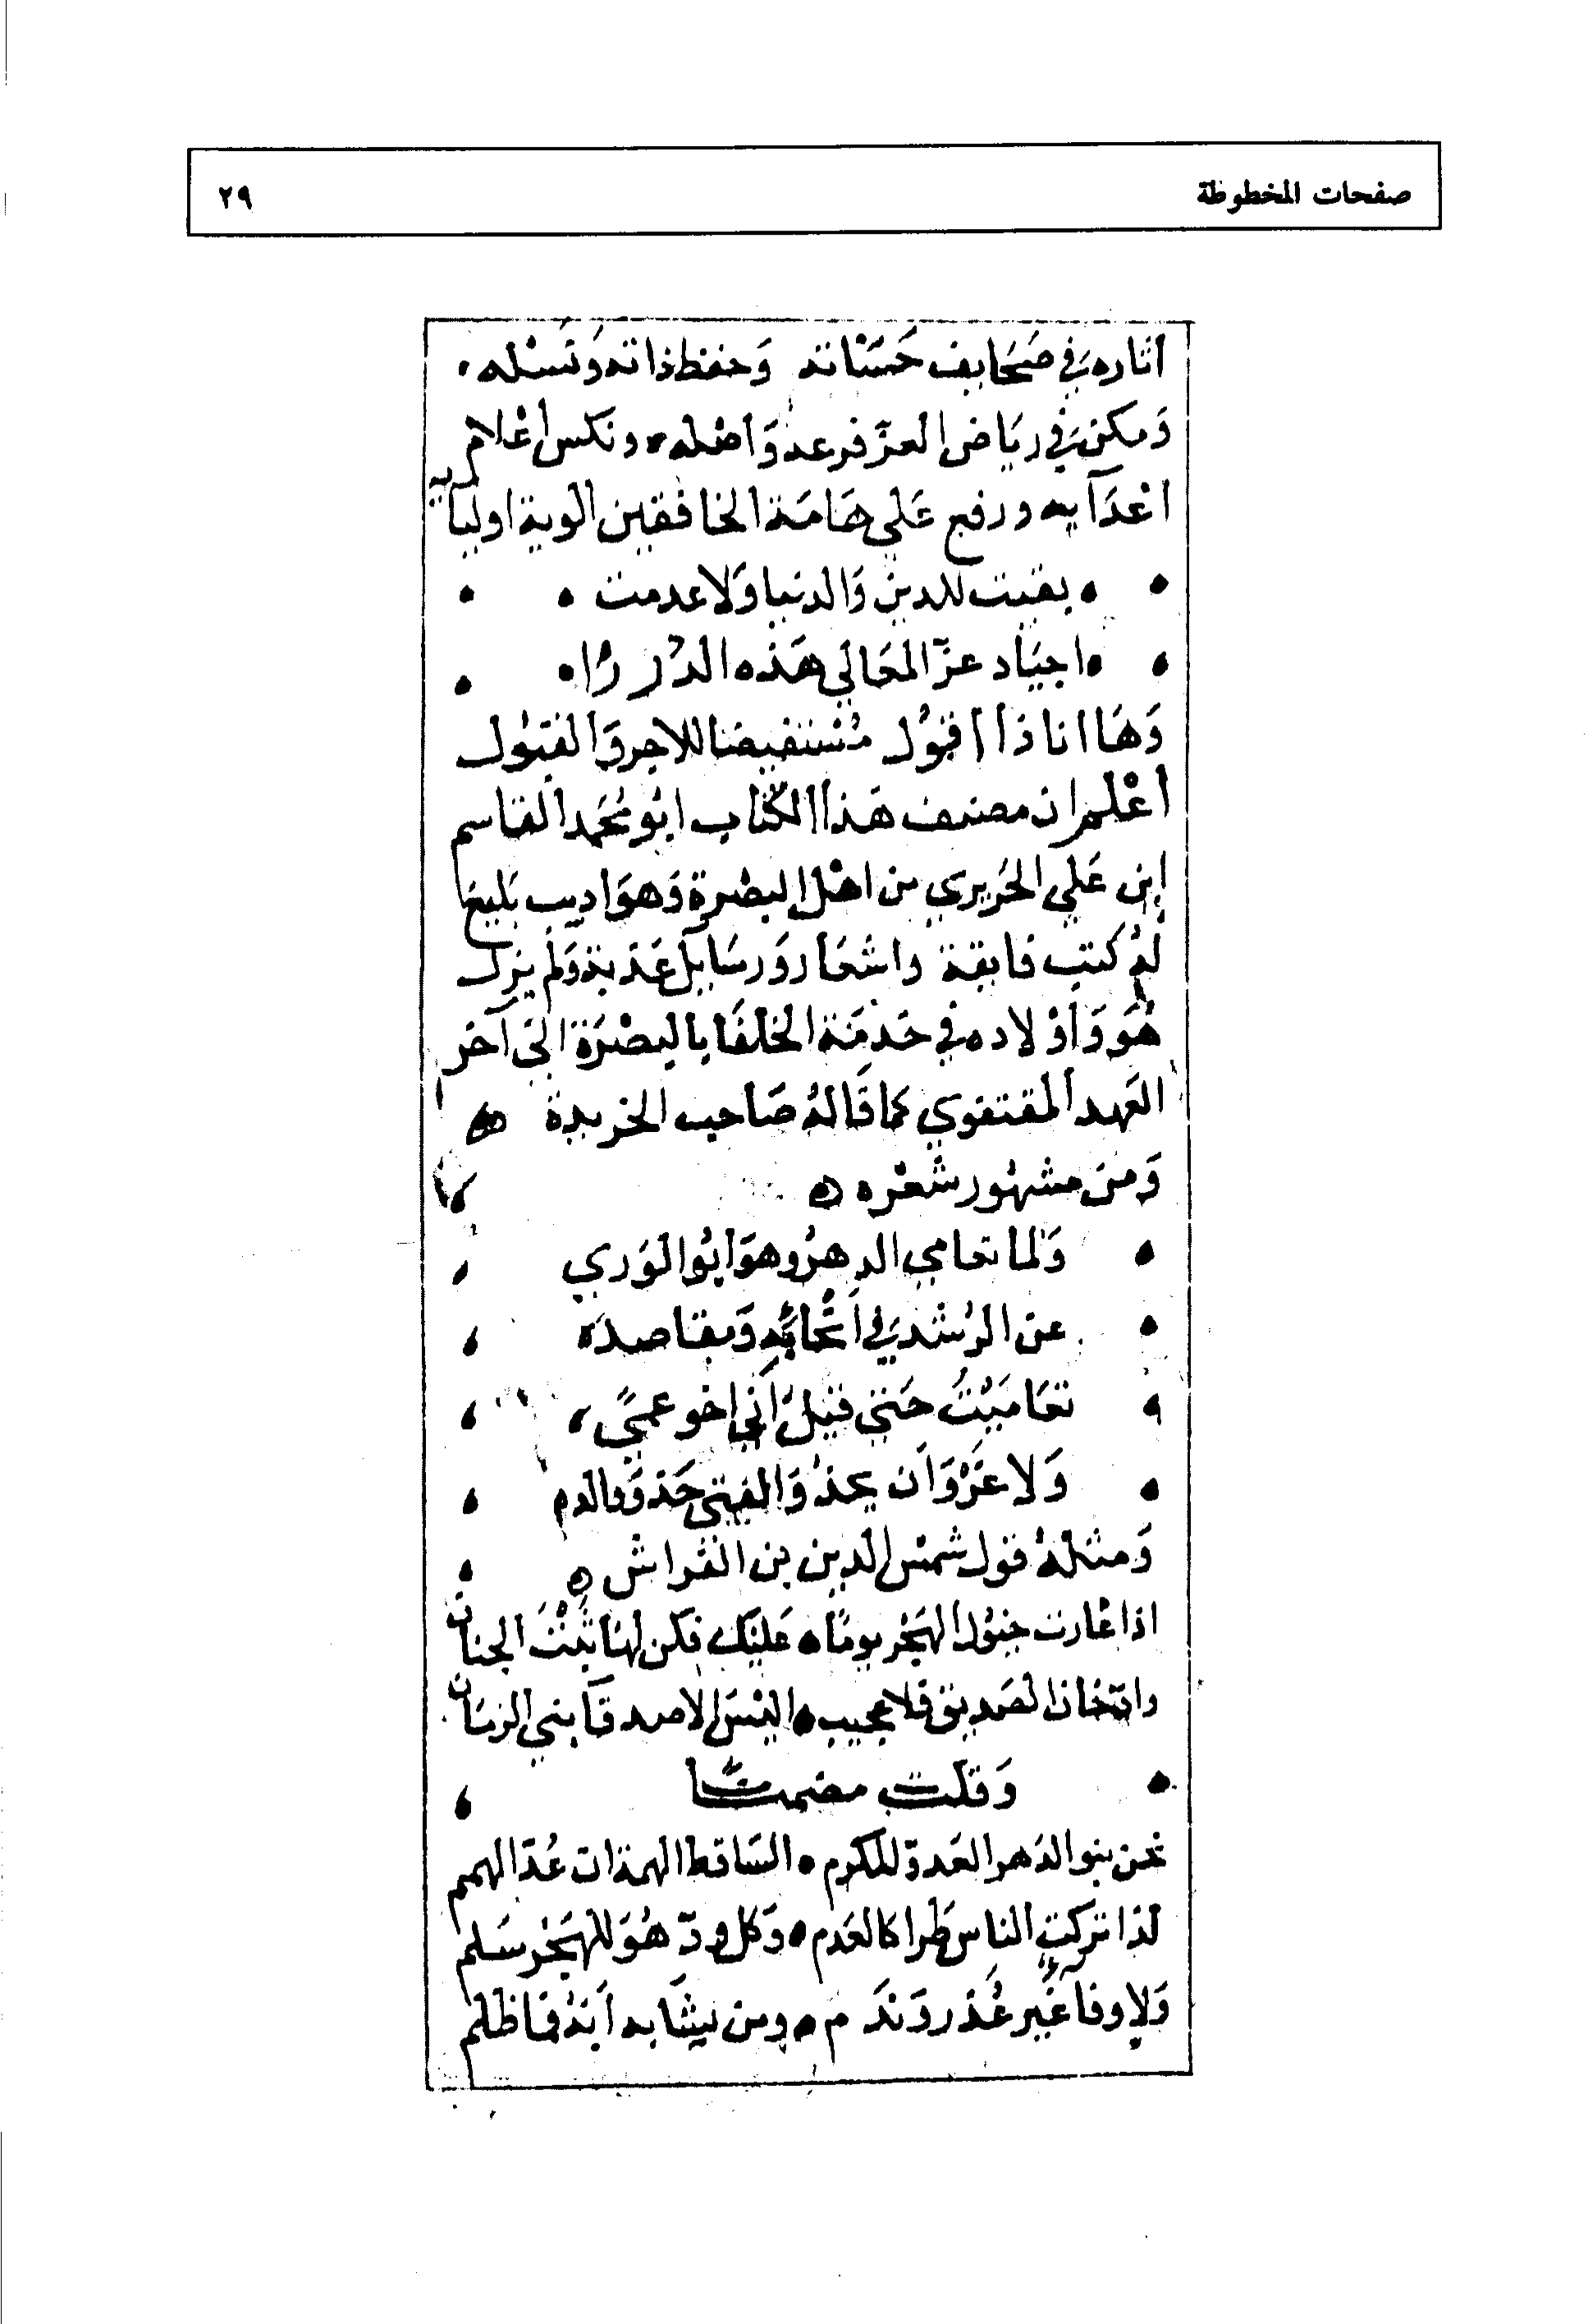 صفحات المخطوطة
٢٩
اثاره في صَحَايف حَسَنَاته وَحفظ ذاته وَنَسْله،
وَمكن في ريَاض العزّ فرعه وَاصْله، ونكس أعْلام
اعْدَآيه ورفع عَلي هَامَة الخافقين الوية اوليآيه
بقيت للدين وَالدنيا وَلا عدمت
اجيَاد عزّ المعَالي هَذه الدُرَرُا
وَهَا انا ذا أقوُل مُستفيضا للاجر وَالقبَول
أعْلم ان مصنف هَذا الكتاب ابُو محَمد القاسم
ابن عَلي الحَريري من اهْل البصْرة وَهوَ اديب بَليغ
لهُ كتب فايقة واشعَار وَرسَايل عَذبة وَلم يزل
هُوَ وَأوْلاده في خدمَة الخلفَا بالبصْرَة الي آخر
العَهد المقتفوي كما قَالهُ صَاحب الخريدة
وَمن مشهُور شعْره
وَلما تعامي الدهرُ وهوَ ابُو الوَري
عن الرُشد في أنحَائِهِ وَمقاصده
تعَامَيْتُ حَتي قيلَ اني اخو عمىً،
وَلا غَرْوَ ان يحذُوَ الفتي حَذوَ والده
وَمثلهُ قول شمسْ الدين بن الفَراشْ
اذا غارت خيُول الهَجْر يومًا، عَليَك فكن لهَا ثَبْتَ الجنان
وان خان الصَديق فلا عجيب، اليسَ الاصدقآ بني الزمَان
وَقلت مضمنًا
نحن بنو الدَهر العَدوّ للمكرم، السَاقط الهمة ان عُدّ الهمم
لذا تركت الناس طَرا كالعَدم، وَكل ودّ هُوَ للهَجْر سَلم
وَلا وفآ غَير غُدر وَنَدَم، ومن يشَابه أبَهُ فما ظلَم